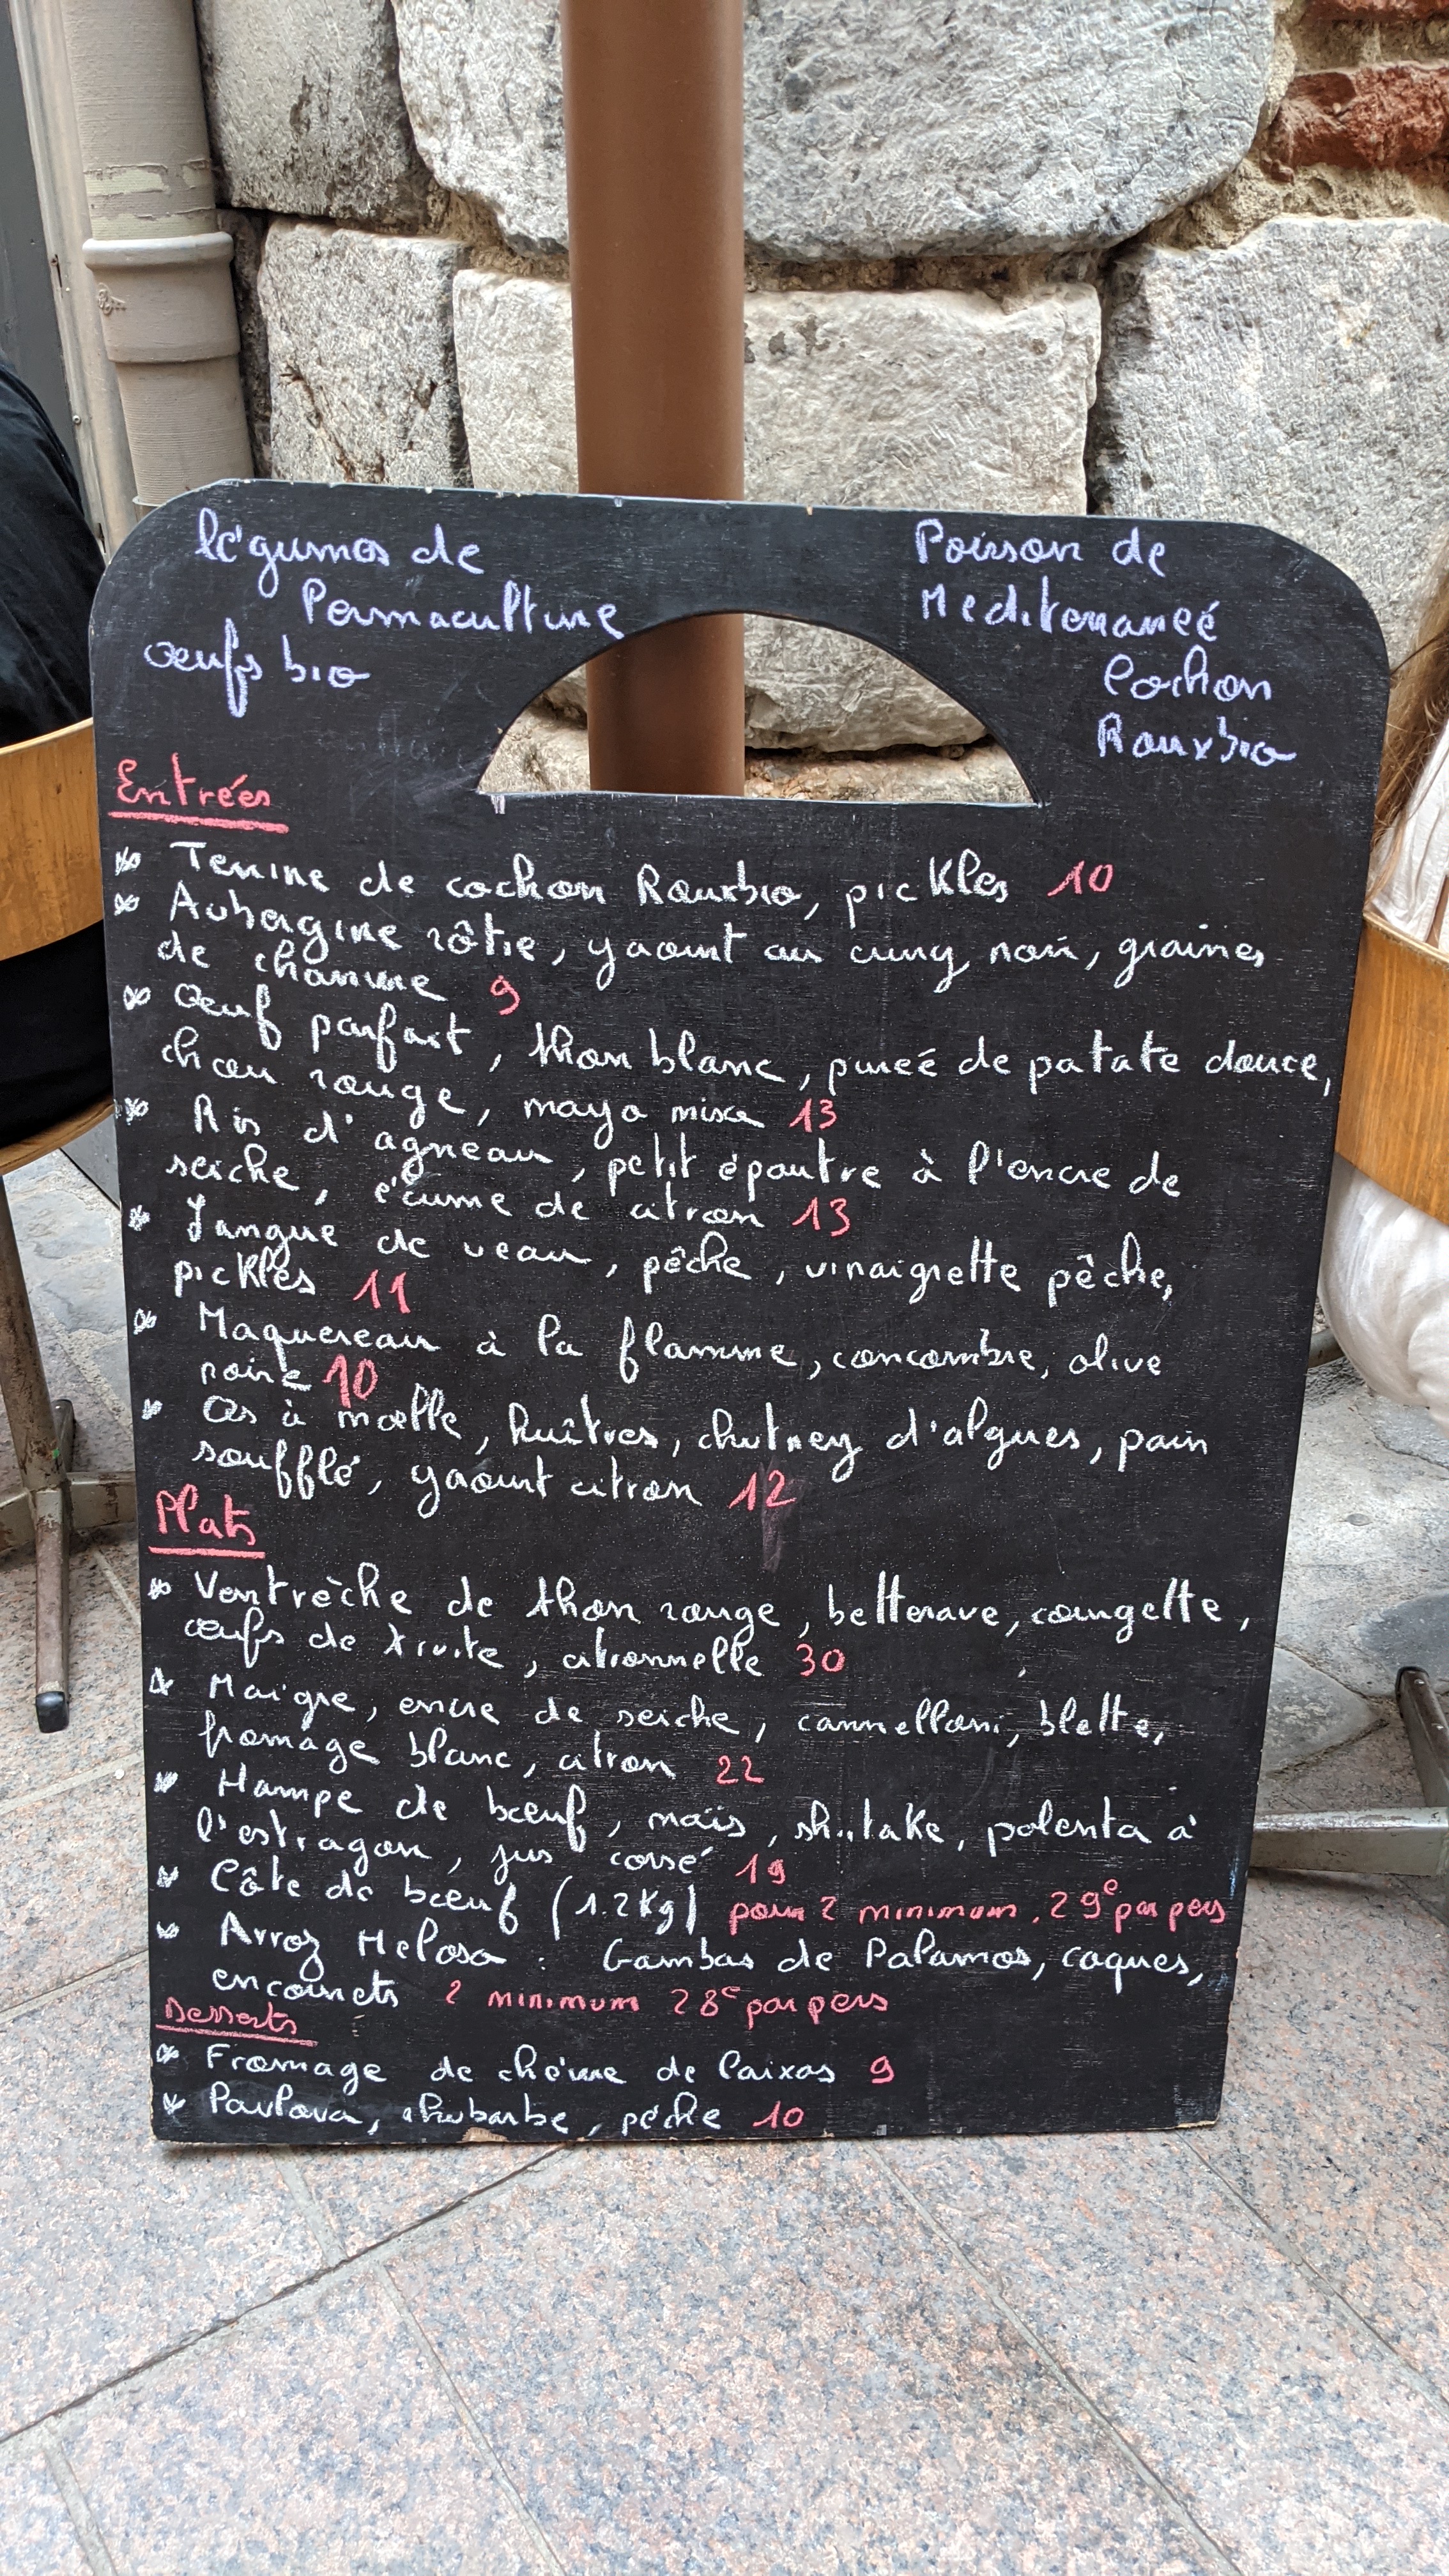 légumes de
Permaculture
œufs bio
Poisson de
Mediterraneé
Cochon
Rouxbio
Entrées
Terrine de cochon Rouxbio, pickles 10
Aubergine rôtie, yaourt au curry noir, graines
de chanvre 9
Œuf parfait, thon blanc, pureé de patate douce,
chou rouge, mayo miso 13
Ris d'agneau, petit épeautre à l'encre de
seiche, écume de citron 13
Langue de veau, pêche, vinaigrette pêche,
pickles 11
Maquereau à la flamme, concombre, olive
noire 10
Os à moelle, huîtres, chutney d'algues, pain
soufflé, yaourt citron 12
Plats
Ventrèche de thon rouge, betterave, courgette,
œufs de truite, citronnelle 30
Maigre, encre de seiche, cannelloni, blette,
fromage blanc, citron 22
Hampe de bœuf, maïs, shiitake, polenta à
l'estragon, jus corsé 19
Côte de bœuf (1.2Kg) pour 2 minimum. 29€ par pers
Arroz Meloso : Gambas de Palamos, coques,
encornets 2 minimum 28€ par pers
Desserts
Fromage de chèvre de Caixas 9
Pavlova, rhubarbe, pêche 10